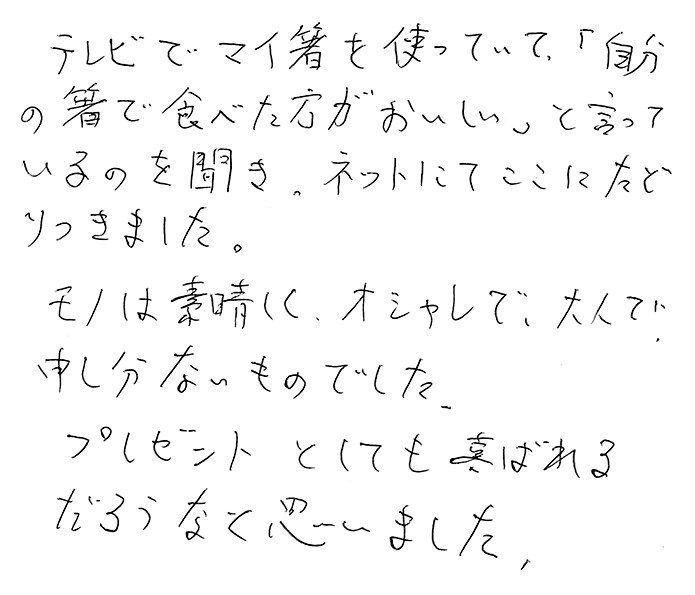 テレビでマイ箸を使っていて、「自分
の箸で食べた方がおいしい。」と言って
いるのを聞き、ネットにてここにたど
りつきました。
モノは素晴しく、オシャレで、大人で、
申し分ないものでした。
プレゼントとしても喜ばれる
だろうなと思いました。